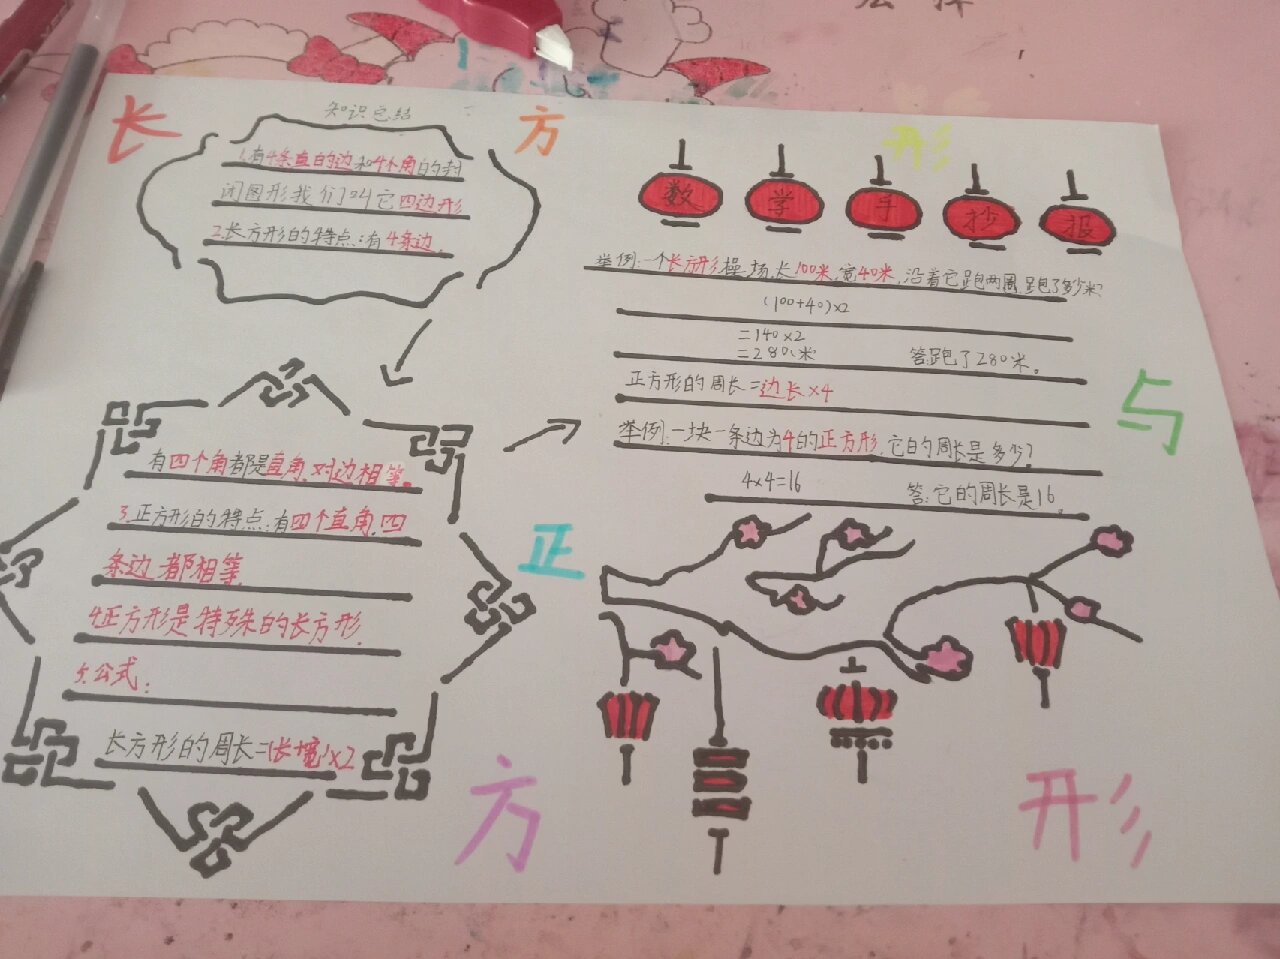 长方形与正方形
数学手抄报
知识总结
1.有4条直的边和4个角的封
闭图形我们叫它四边形
2.长方形的特点:有4条边.
有四个角都是直角.对边相等。
3.正方形的特点:有四个直角.四
条边都相等
4正方形是特殊的长方形.
5.公式:
长方形的周长=(长+宽)×2
举例:一个长方形操场,长100米,宽40米,沿着它跑两周,跑了多少米?
(100+40)×2
=140×2
=280(米) 答:跑了280米。
正方形的周长=边长×4
举例:一块一条边为4的正方形,它的周长是多少?
4×4=16 答:它的周长是16.